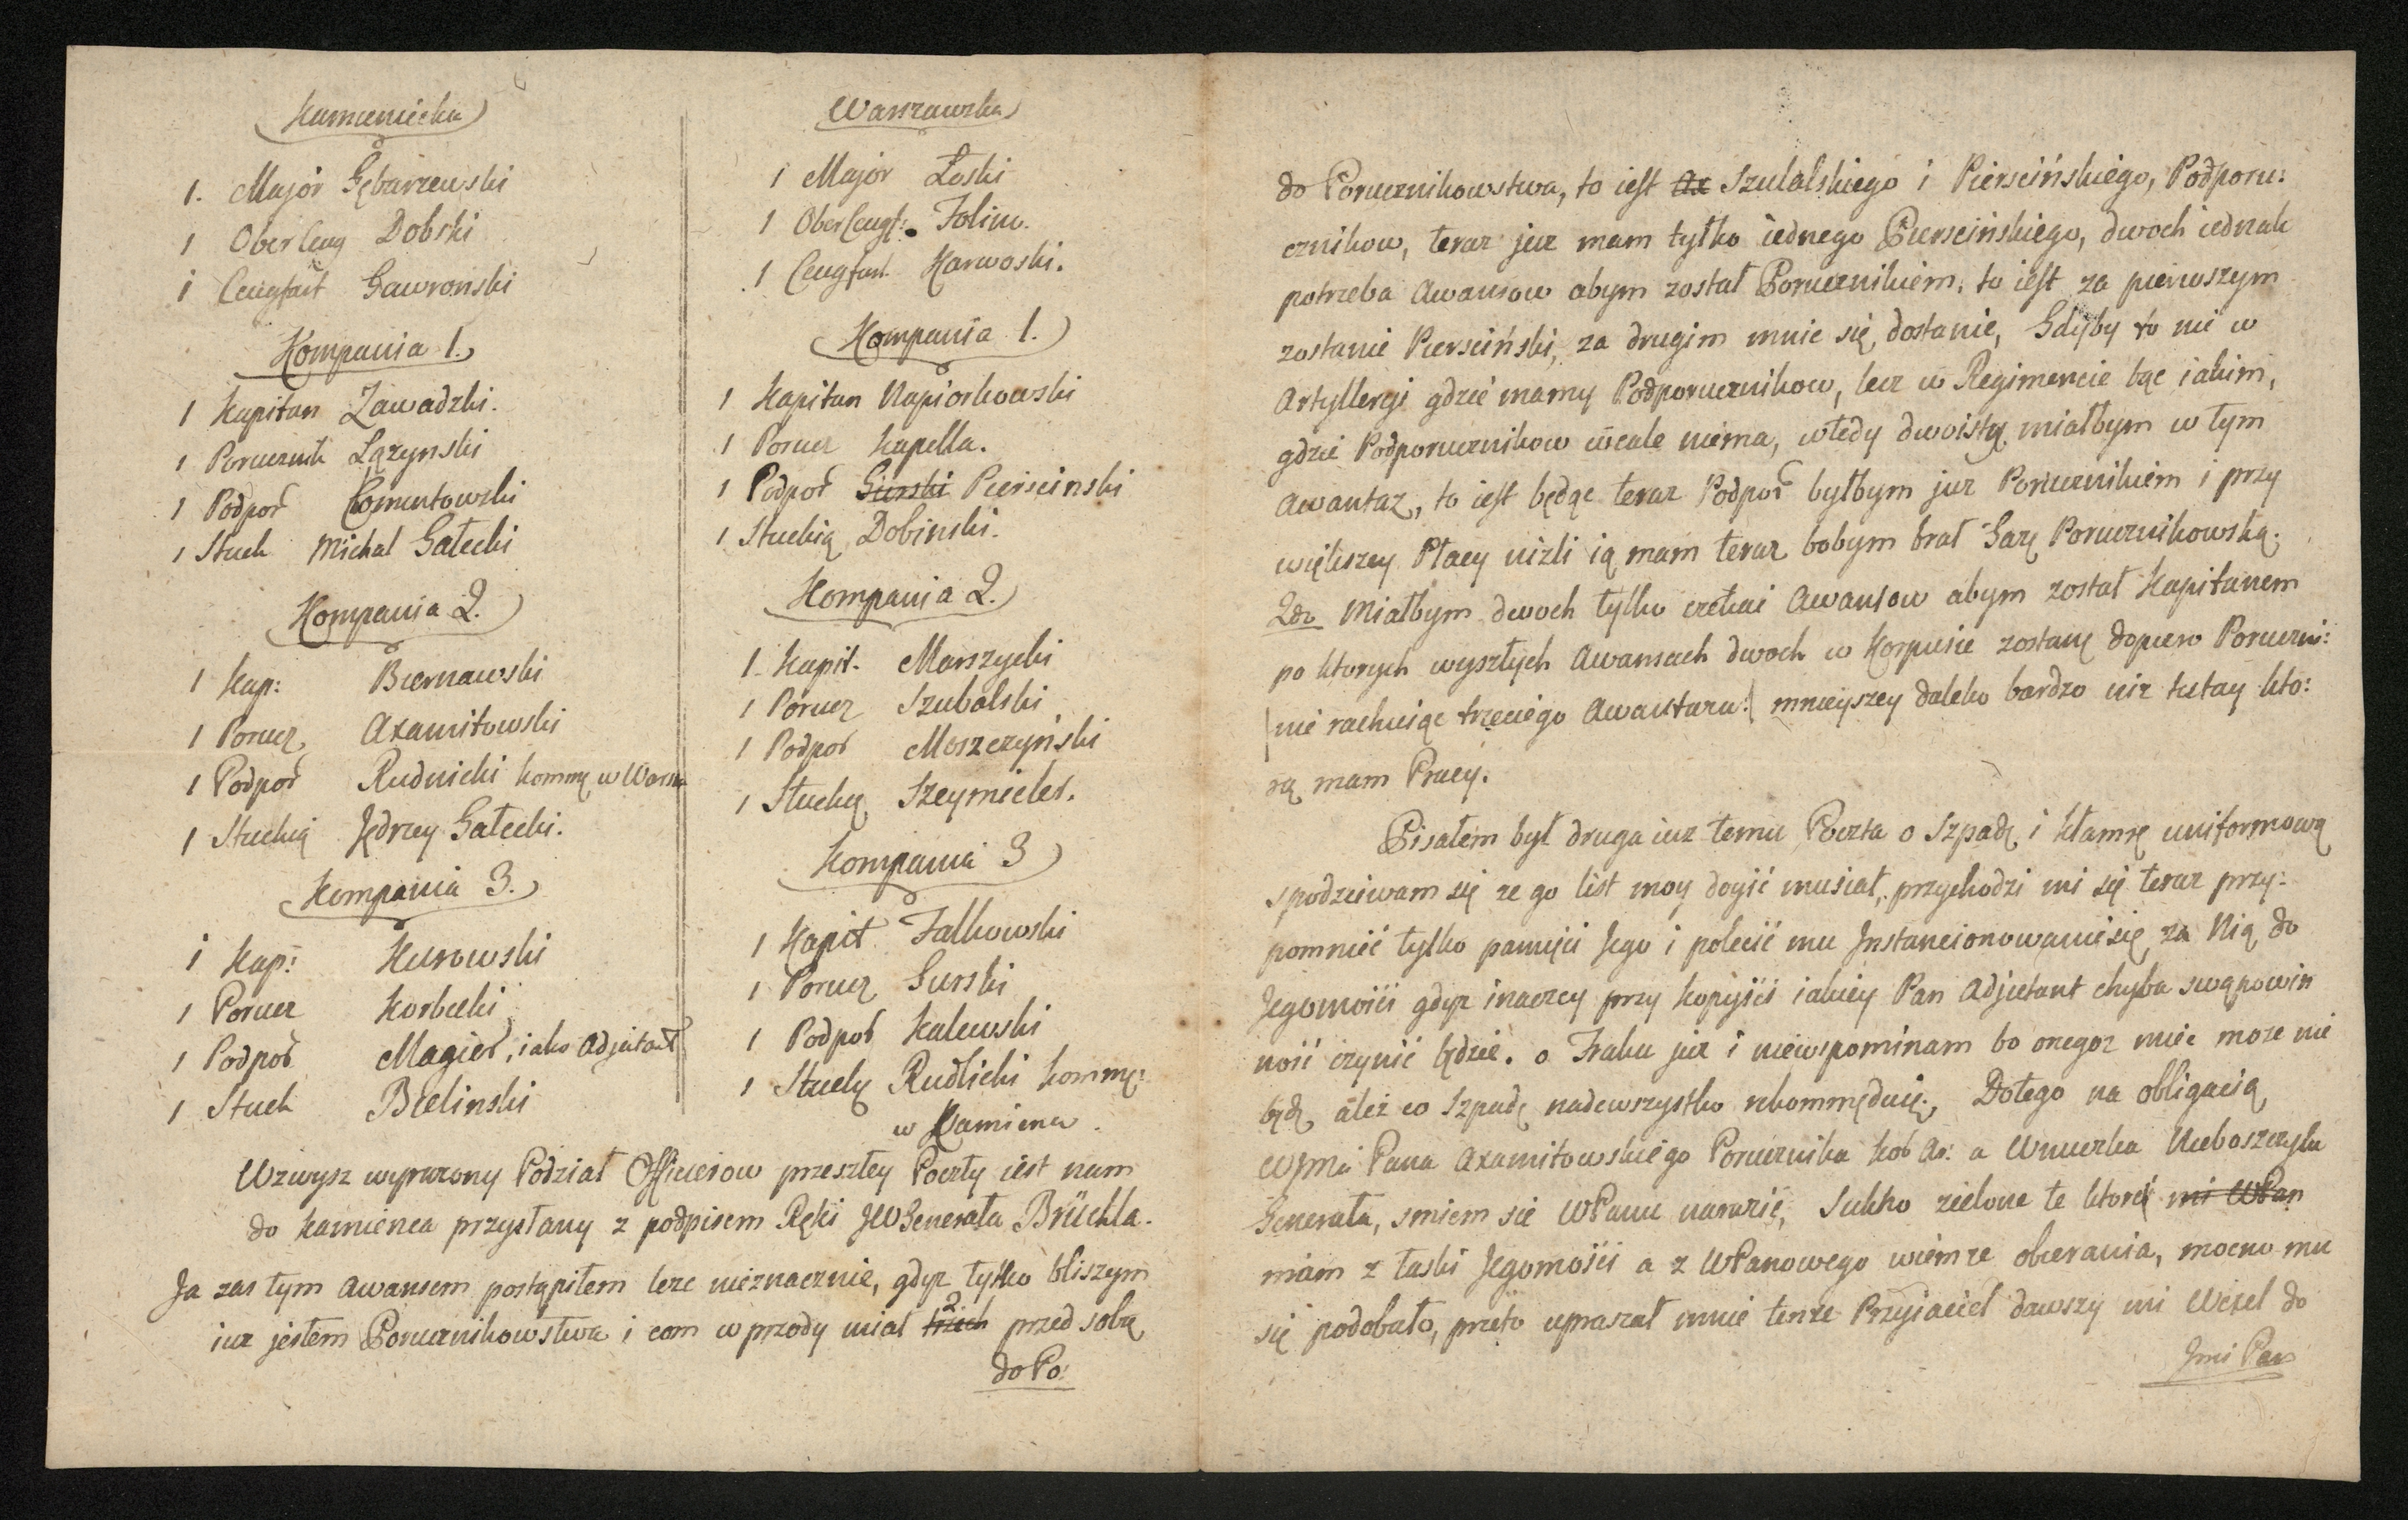 Kamieniecka
1. Major Gębarzewski
1 Ober Ceug Dobski
1 Ceugfart Gawronski
Kompania 1.
1 Kapitan Zawadzki.
1 Porucznik Łązynski
1 Podpor Comentowski
1 Stuck Michał Gałecki
Kompania 2.
1 Kap: Biernawski
1 Porucz Axamitowski
1 Podpor Rudnicki kommę w Warsza
1 Stuckią Jędrzey Gałecki.
Kompania 3.
1 Kap: Kurowski
1 Porucz Korbecki
1 Podpor Magier, iako Adjutant
1 Stuck Bielinski
Warszawska
1 Major Łoski
1 Ober Ceugf: Jolim.
1 Ceugfart Karwoski.
Kompania 1.
1 Kapitan Napiorkowski
1 Porucz Kapella.
1 Podpor Gurski Pierscinski
1 Stuckią Dobinski.
Kompania 2.
1 Kapit. Marszycki
1 Porucz Szubalski
1 Podpor Moszczyński
1 Stuckią Szeymieler.
Kompania 3
1 Kapit Falkowski
1 Porucz Gurski
1 Podpor Kalewski
1 Stucky Rudlicki kommę:
w Kamiencu.
Wzwysz wyrazony Podział Officierow przeszłey Poczty iest nam
do Kamienca przysłany z podpisem Ręki JWGenerała Brüchla.
Ja zas tym Awansem postąpiłem lecz nieznacznie, gdyz tylko bliszym
iuz jestem Porucznikowstwa i com w przody miał trzech 2 przed sobą
do Po:
do Porucznikowstwa, to iest Ax Szulalskiego i Pierscińskiego, Podporu:
cznikow, teraz juz mam tylko iednego Pierscińskiego, dwoch iednak
potrzeba Awansow abym został Porucznikiem, to iest za pierwszym
zostanie Piersciński, za drugim mnie się dostanie, Gdyby to nie w
Artylleryi gdzie mamy Podporucznikow, lecz w Regimencie bąc iakim,
gdzie Podporucznikow wcale niema, wtedy dwoistą miałbym w tym
Awantaz, to iest będąc teraz Podpor byłbym juz Porucznikiem i przy
większey Płacy nizli ią mam teraz bobym brał Gazę Porucznikowską.
2do Miałbym dwoch tylko czekai Awansow abym został Kapitanem
po ktorych wyszłych Awansach dwoch w Korpusie zostanę dopiero Poruczni:
/nie rachuiąc trzeciego Awantazu:/ mnieyszey daleko bardzo niz tutay kto:
rą mam Pracy.
Pisałem był druga iuz temu Poczta o Szpadę i Kłamrę uniformową
spodziewam się ze go list moy doyić musiał, przychodzi mi się teraz przy:
pomnieć tylko pamięci Jego i polecić mu Jnstancionowanie się za Nią do
Jegomości gdyz inaczey przy kopyści iakiey Pan Adjutant chyba swą powin
ność czynić będzie. o Fraku juz i niewspominam bo onegoz mieć moze nie
będę ale co Szpadę nadewszystko rekommęduię. Dotego na obligacią
WJmci Pana Axamitowskiego Porucznika Kor Ar: a Wnuczka Nieboszczyka
Generała, smiem sie WPanu narazić, Sukno zielone te ktore mi WPan
mam z łaski Jegomości a z WPanowego wiem ze obierania, mocno mu
się podobało, przeto upraszał mnie tenze Przyiaciel dawszy mi Wexel do
Jmci Pan